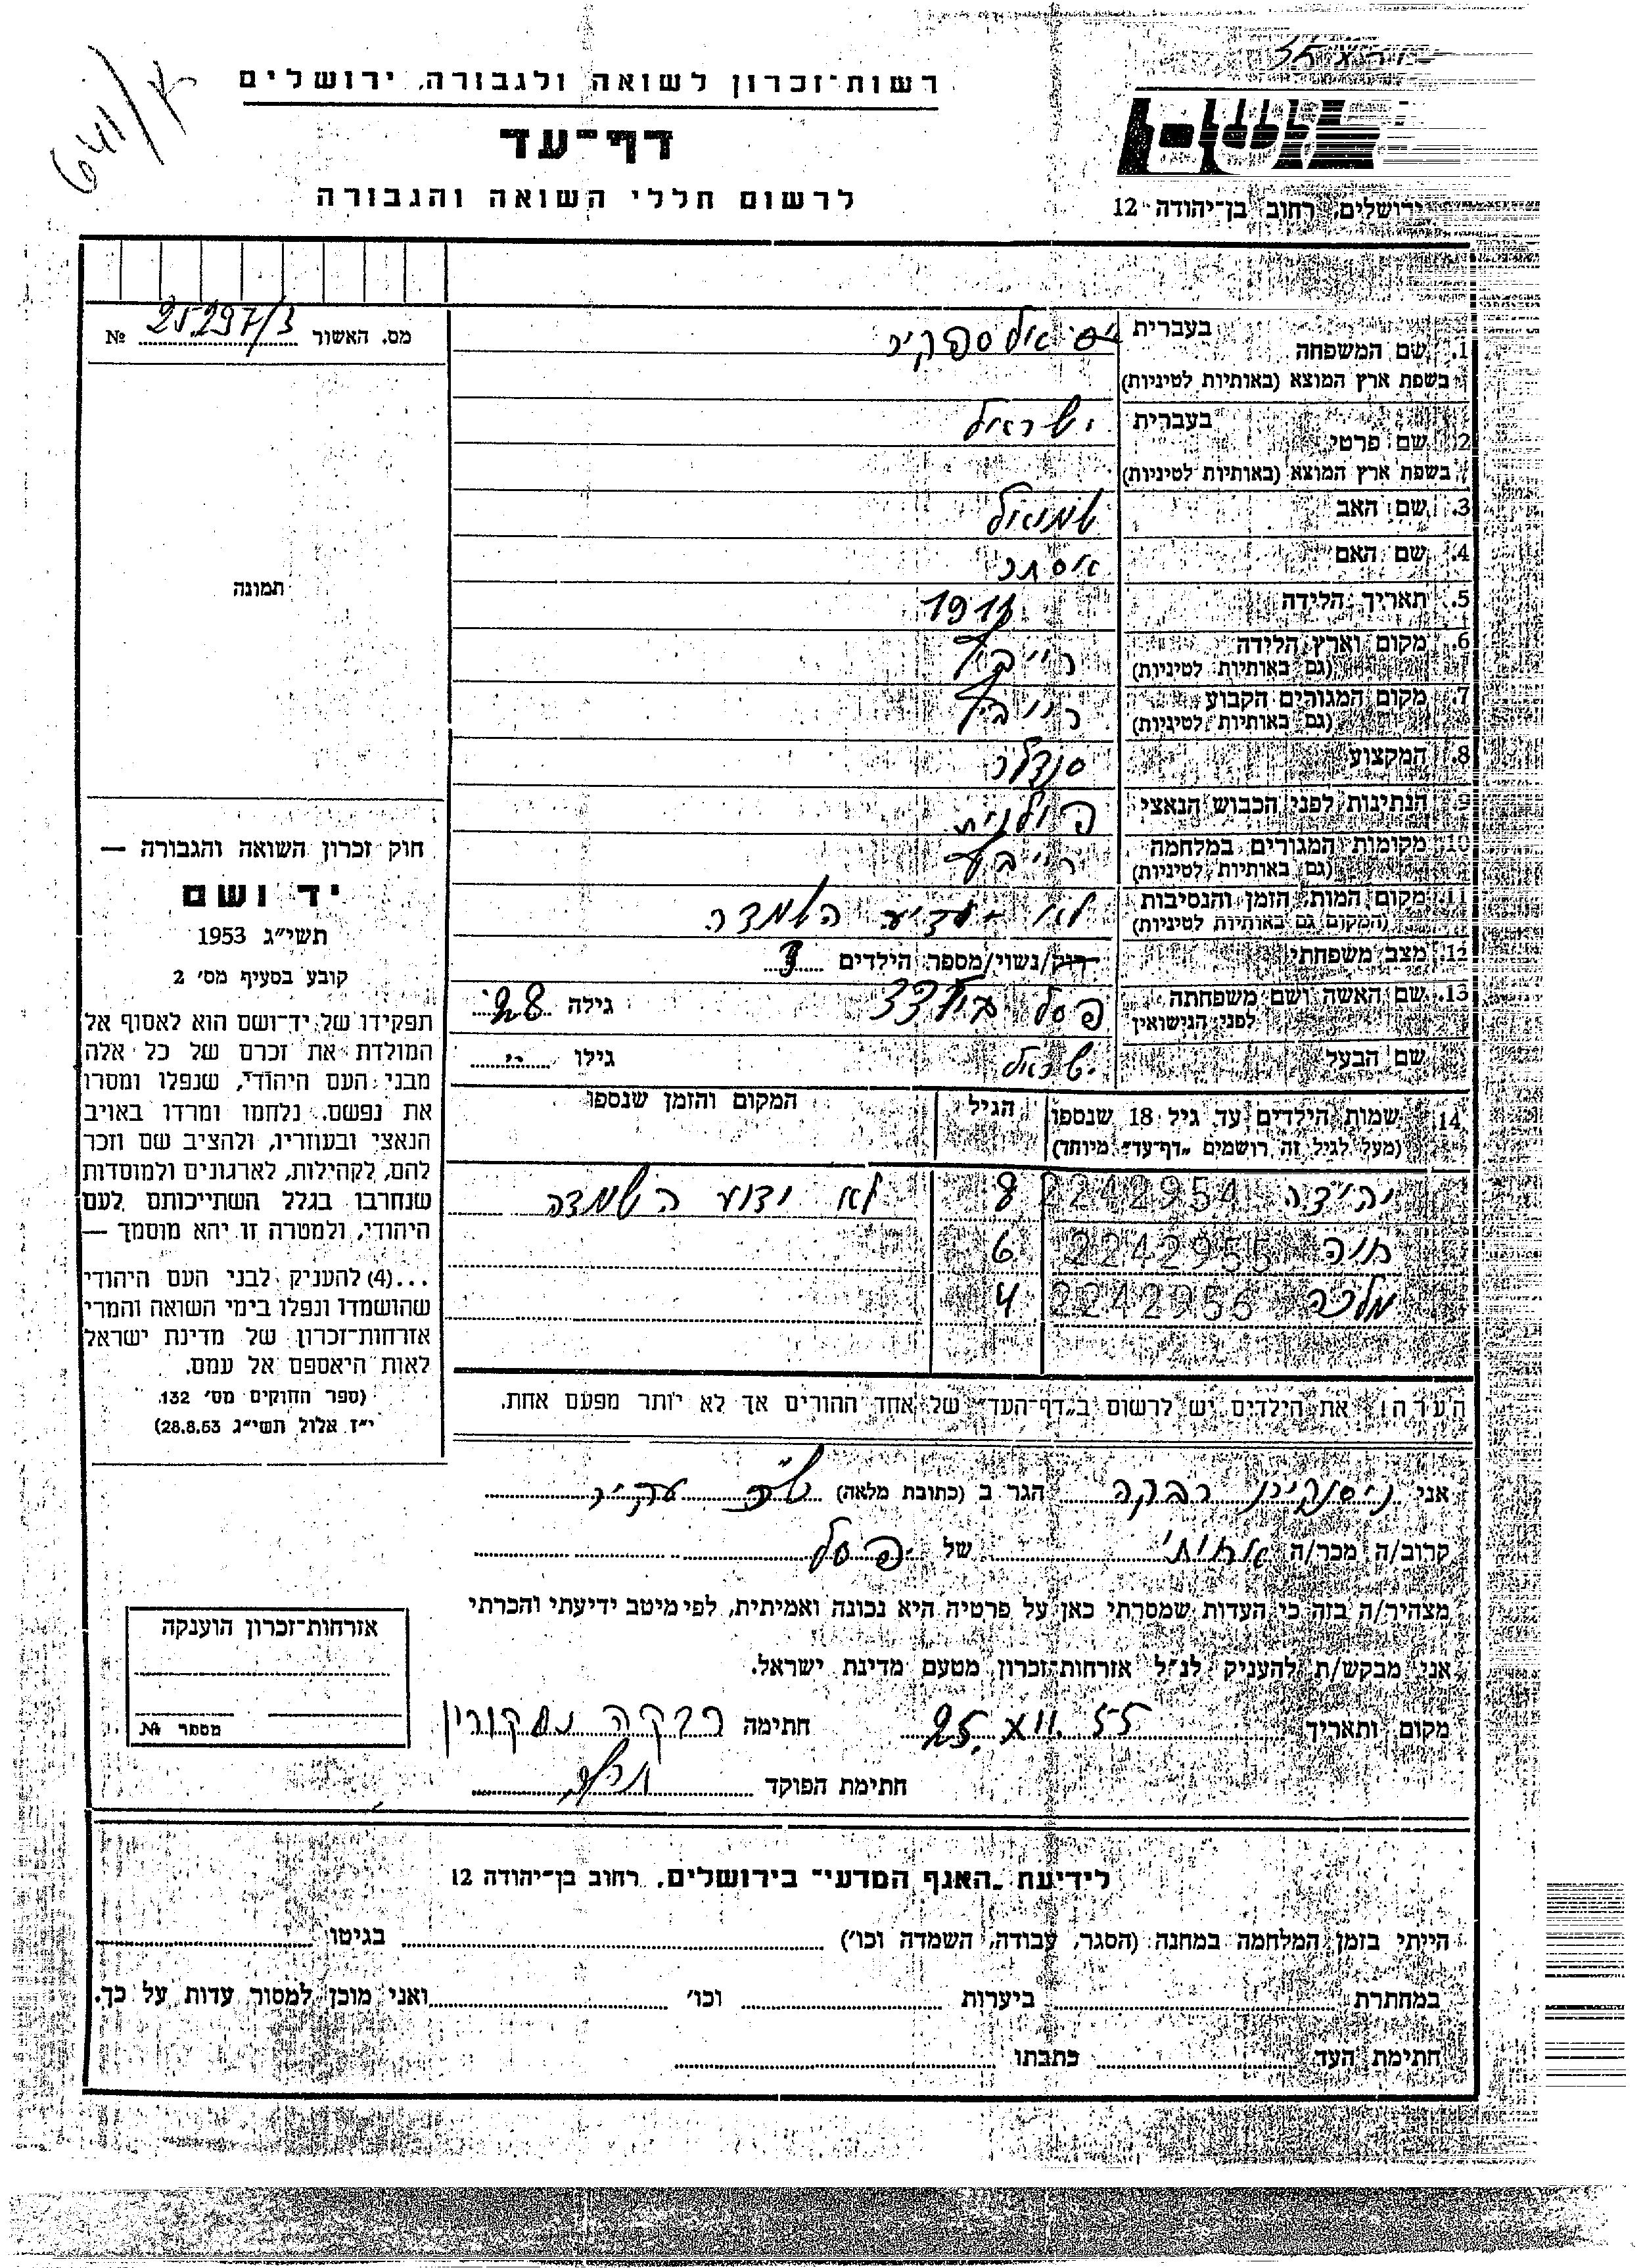 רשות־זכרון לשואה ולגבורה, ירושלים
דף־עד
לרשום חללי השואה והגבורה
ירושלים, רחוב בן־יהודה 12
מס. האשור 25297/3 №
תמונה
1. שם המשפחה
בעברית
בשפת ארץ המוצא (באותיות לטיניות)
2. שם פרטי
בעברית ישראל
בשפת ארץ המוצא (באותיות לטיניות)
3. שם האב שמואל
4. שם האם אסתר
5. תאריך הלידה
6. מקום וארץ הלידה
(גם באותיות לטיניות)
7. מקום המגורים הקבוע
(גם באותיות לטיניות)
8. המקצוע סנדלר
9. הנתינות לפני הכבוש הנאצי פולנית
10. מקומות המגורים במלחמה
(גם באותיות לטיניות)
11. מקום המות, הזמן והנסיבות לא השמדה
(המקום גם באותיות לטיניות)
12. מצב משפחתי רוק/נשוי/מספר הילדים 3
13. שם האשה ושם משפחתה פסל גילה 28
לפני הנישואין
שם הבעל ישראל גילו
14. שמות הילדים עד גיל 18 שנספו הגיל המקום והזמן שנספו
(מעל לגיל זה רושמים "דף־עד" מיוחד)
2242954 8 לא ידוע השמדה
חוה 2242955 6
מלכה 2242956 4
הערה: את הילדים יש לרשום ב"דף־העד" של אחד ההורים אך לא יותר מפעם אחת.
חוק זכרון השואה והגבורה —
יד ושם
תשי״ג 1953
קובע בסעיף מס׳ 2
תפקידו של יד־ושם הוא לאסוף אל
המולדת את זכרם של כל אלה
מבני העם היהודי, שנפלו ומסרו
את נפשם, נלחמו ומרדו באויב
הנאצי ובעוזריו, ולהציב שם וזכר
להם, לקהילות, לארגונים ולמוסדות
שנחרבו בגלל השתייכותם לעם
היהודי, ולמטרה זו יהא מוסמך —
...(4) להעניק לבני העם היהודי
שהושמדו ונפלו בימי השואה והמרי
אזרחות־זכרון של מדינת ישראל
לאות היאספם אל עמם.
(ספר החוקים מס׳ 132,
י״ז אלול תשי״ג 28.8.53)
אני רבקה הגר ב (כתובת מלאה)
קרוב/ה מכר/ה אחותי של פסל
מצהיר/ה בזה כי העדות שמסרתי כאן על פרטיה היא נכונה ואמיתית, לפי מיטב ידיעתי והכרתי
אני מבקש/ת להעניק לנ״ל אזרחות־זכרון מטעם מדינת ישראל.
מקום ותאריך 25. XII. 55 חתימה רבקה
חתימת הפוקד
אזרחות־זכרון הוענקה
מספר №
לידיעת "האגף המדעי" בירושלים, רחוב בן־יהודה 12
הייתי בזמן המלחמה במחנה (הסגר, עבודה, השמדה וכו׳) בגיטו
במחתרת ביערות וכו׳ ואני מוכן למסור עדות על כך.
חתימת העד כתבתו